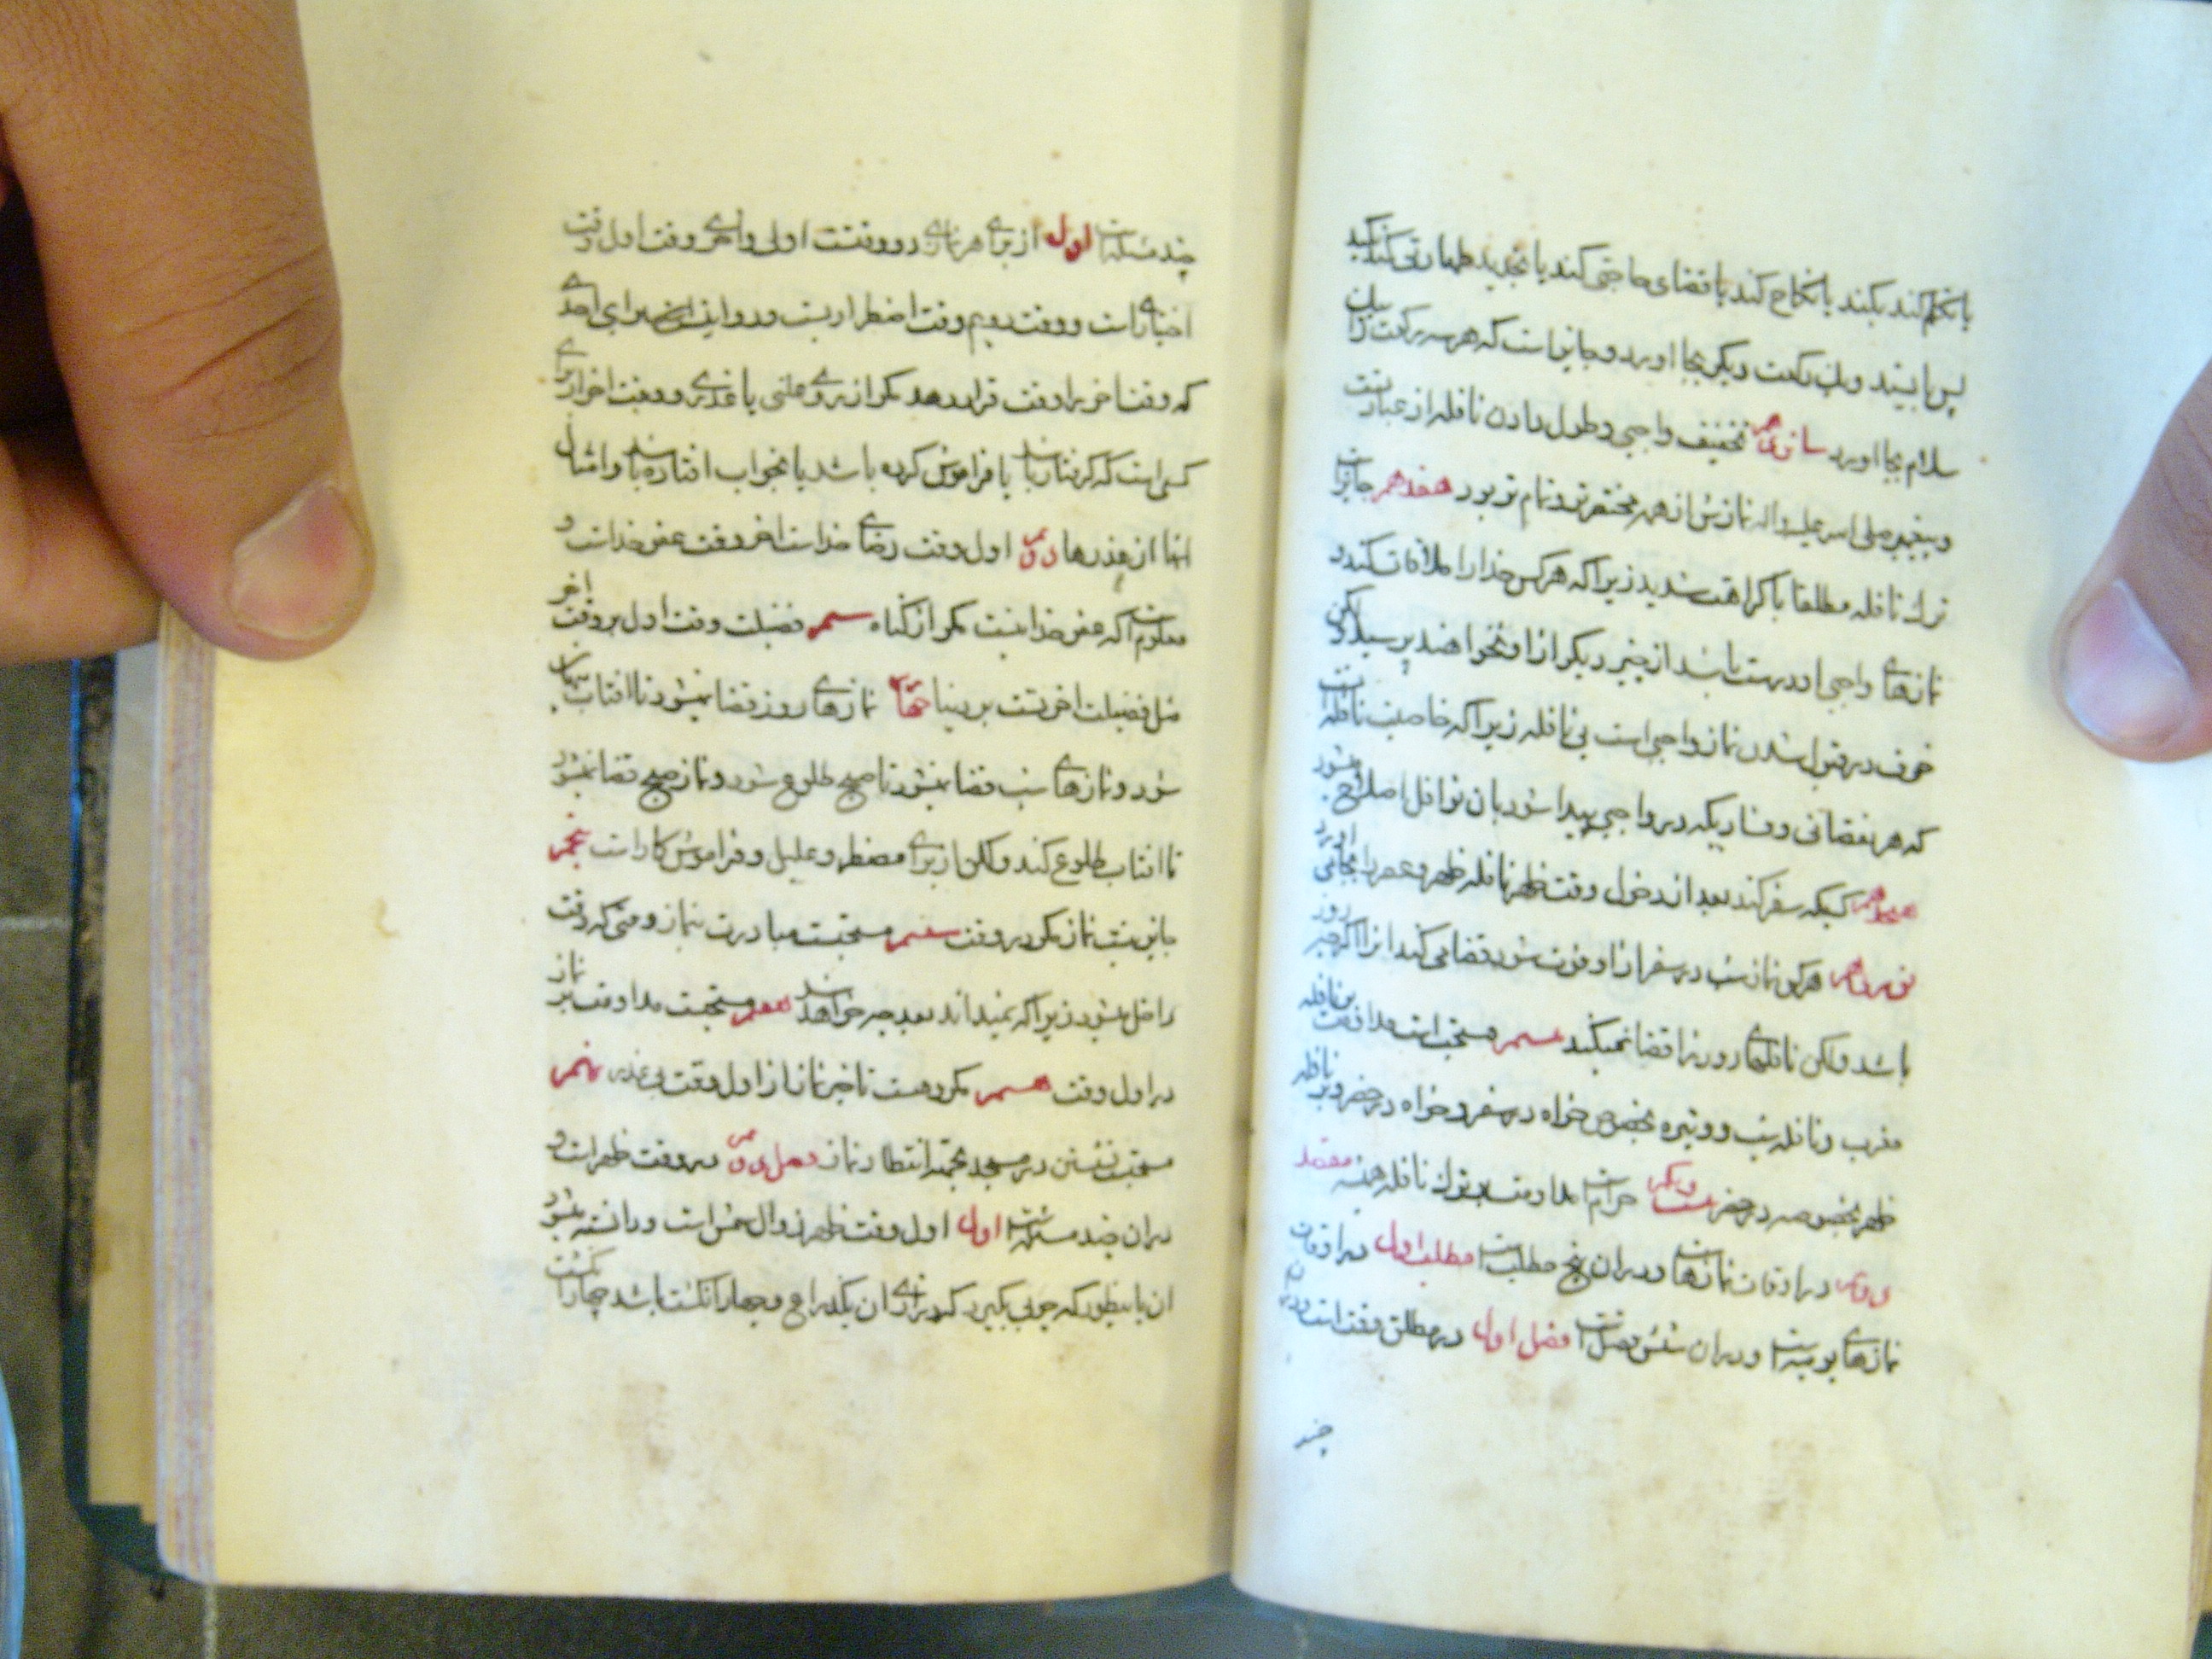 یا تکلم کند بکند یا نکاح کند یا قضای حاجتی کند یا تجدید طهارتی کند بکند
پس بایستد و یک رکعت دیگر بجا اورد و جایز است که هر سه رکعت را بیک
سلام بجا اورد سانزدهم تخفیف واجبی و طول دادن نافله از عبادتست
و پیغمبر صلی اله علیه و اله نمازش از همه مختصرتر و تمام تر بود هفدهم جایز است
ترك نافله مطلقا با کراهت شدید زیرا که هر کس خدا را ملاقات کند و
نمازهای واجبی او درست باشد از چیز دیگر از او نخواهند پرسید و لکن
خوف در قبول شدن نماز واجبی است بی نافله زیرا که خاصیت نافله انست
که هر نقصانی و فسادیکه در واجبی پیدا شود بان نوافل اصلاح میشود
هیجدهم کسیکه سفر کند بعد از دخول وقت ظهر نافله ظهر و عصر را بجا می اورد
نوزدهم هر کس نماز شب در سفر از او فوت شود قضا می کند انرا اگر چه روز
باشد و لکن نافلهای روز را قضا نمیکند بیستم مستحب است مداومت بر نافله
مغرب و نافله شب و وتیره بخصوص خواه در سفر و خواه در حضر و بر نافله
ظهر بخصوصه در حضر بیست ویکم حرام است مداومت بر ترك نافله همیشه مقصد
دوم در اوقات نمازها و در ان پنج مطلب است مطلب اول در اوقات
نمازهای یومیه است و در ان شش فصل است فصل اول در مطلق وقت است و در ان
چند
چند مسئله است اول از برای هر نمازی دو وقتست اولی و اخری وقت اول وقت
اختیار است و وقت دویم وقت اضطرار یست و روا نیست از برای احدی
که وقت اخر را وقت قرار دهد مگر از روی علتی یا عذری و وقت اخر از برای
کسی است که گرفتار باشد یا فراموش کرده باشد یا بخواب افتاده باشد و امثال
اینها از عذرها دوم اول وقت رضای خداست اخر وقت عفو خداست و
معلوم است که عفو خدا نیست مگر از گناه سیم فضیلت وقت اول بر وقت اخر
مثل فضیلت اخرتست بر دنیا چهارم نمازهای روز قضا نمیشود تا افتاب پنهان
شود و نمازهای شب قضا نمیشود تا صبح طلوع شود و نماز صبح قضا نمیشود
تا افتاب طلوع کند و لکن از برای مضطر و علیل و فراموش کار است پنجم
جایز نیست نماز مگر در وقت ششم مستحبست مبادرت بنماز وقتی که وقت
داخل میشود زیرا که نمیداند بعد چه خواهد شد هفتم مستحبست مداومت بر نماز
در اول وقت هشتم مکروهست تاخیر نماز از اول وقت بی عذر نهم
مستحب نشستن در مسجد بجهة انتظار نماز فصل دوم در وقت ظهر است و
در ان چند مسئله است اول اول وقت ظهر زوال شمس است و دانسته میشود
ان باینطور که چوبی بگیرد که درازی ان یکذراع و چهار انگشت باشد چهار انگشت